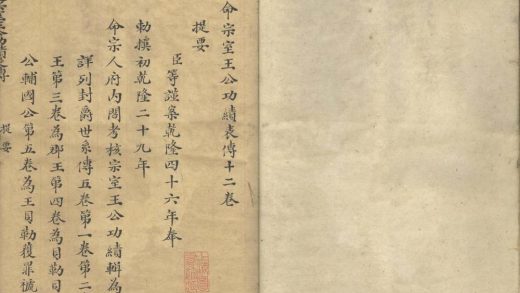 命宗室王公功績表傳十二卷
提要
臣等謹案乾隆四十六年奉
勅撰初乾隆二十九年
命宗人府內閣考核宗室王公功績輯為
詳列封爵世系傳五卷第一卷第二
王第三卷為郡王第四卷為貝勒貝
公輔國公第五卷為王貝勒獲罪褫
提要